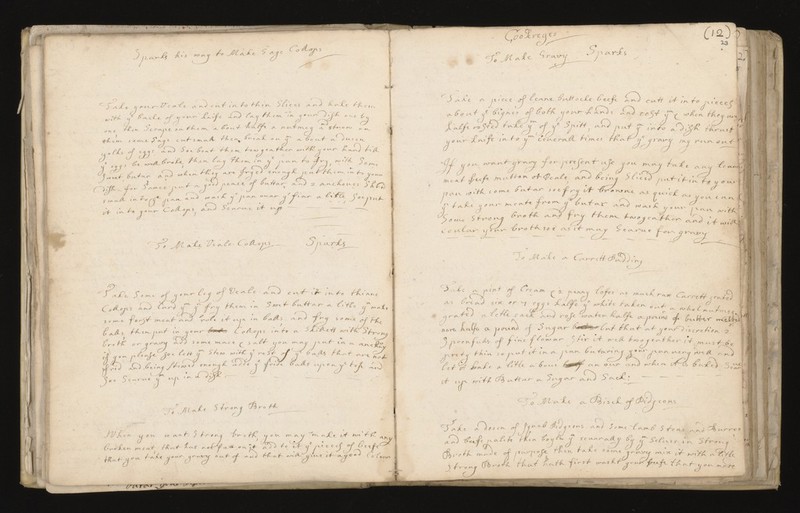 Sparks his way to Make Sage Collops
Take your Veale and cut in to thin Slices and hake them
with ye backe of your knife and lay them in your dish one by
one then Scrape on them about halfe a nutmeg &
them some Sage cut smale then break on ym about a dozen
yolks of eggs and bee beat them togeather with your hand till
ye eggs be well broke, then lay them in ye pan to fry with Some
Sweet butar and when they are fryed enough put them into your
dish for Sauce put a good peece of butter, and 2 anchoves Shred
smale in to ye pan and wash ye pan over ye fire a litle So put
it in to your Collops and Searve it up
To Make Veale Collops Sparks
Take Some of your leg of Veale and cut it into thinne
Collops and lard ym & fry them in Sweet buttar a litle ym make
some forst meat and role it up in balls and fry some of the
balls then put in your Collops into a Skillett with Strong
broth or gravy and some mace & salt you may put in a anchove
if you please So lett ym Stew with ye rest of ye balls that are not
fryed and being Stewed enough lade ye fried balls upon ye top and
Soe Searve ym up in a dish
To Make Strong Broth
When you want Strong broth you may make it with any
broken meat that but and to it ye peeces of beefe
that you take your gravy out of and that will give it a good Colour
(12)
Gookreyes
To Make Gravy Sparks
Take a piece of leane buttacke beefe and cutt it into pieces
about ye bignes of both your hands and rost ym & when they are
halfe rosted take ym of ye Spitt, and put ym into a dish thrust
your knife into ym Severall times that ye gravy may run out
If you want gravy for present use you may take any leane
meat beefe mutton or Veale, and being Sliced put it into your
pan with some butar soe fry it browne as quick as you can
ym take your meate from ye butar and wash your pan with
Some Strong broth and fry them togeather and it will
coulur your broth soe as it may Searve for gravy
To Make a Carrett Pudding
Take a pint of Cream a peny lofe as much raw Carrett grated
as bread six or 7 eggs halfe ye white taken out a whole nutmeg
grated a litle sack and rose water halfe a pound of butter melted
one halfe a pound of Sugar but that at your discretion &
3 spoonfuls of fine flower Stir it well togeather it must be
prety thin so put it in a pan butaring your pan very well and
let it bake a litle above an our and when it is baked Searve
it up with Buttar a Sugar and Sack:
To Make a Bisck of Pidgeons
Take a dozen of Pidgeons and Some Lamb Stons and
and beefe palits then boyle ym severally by ym Selves in Strong
Broth made of purpose then take some gravy mix it with a litle
Strong Broth that hath first washt your beefe that you